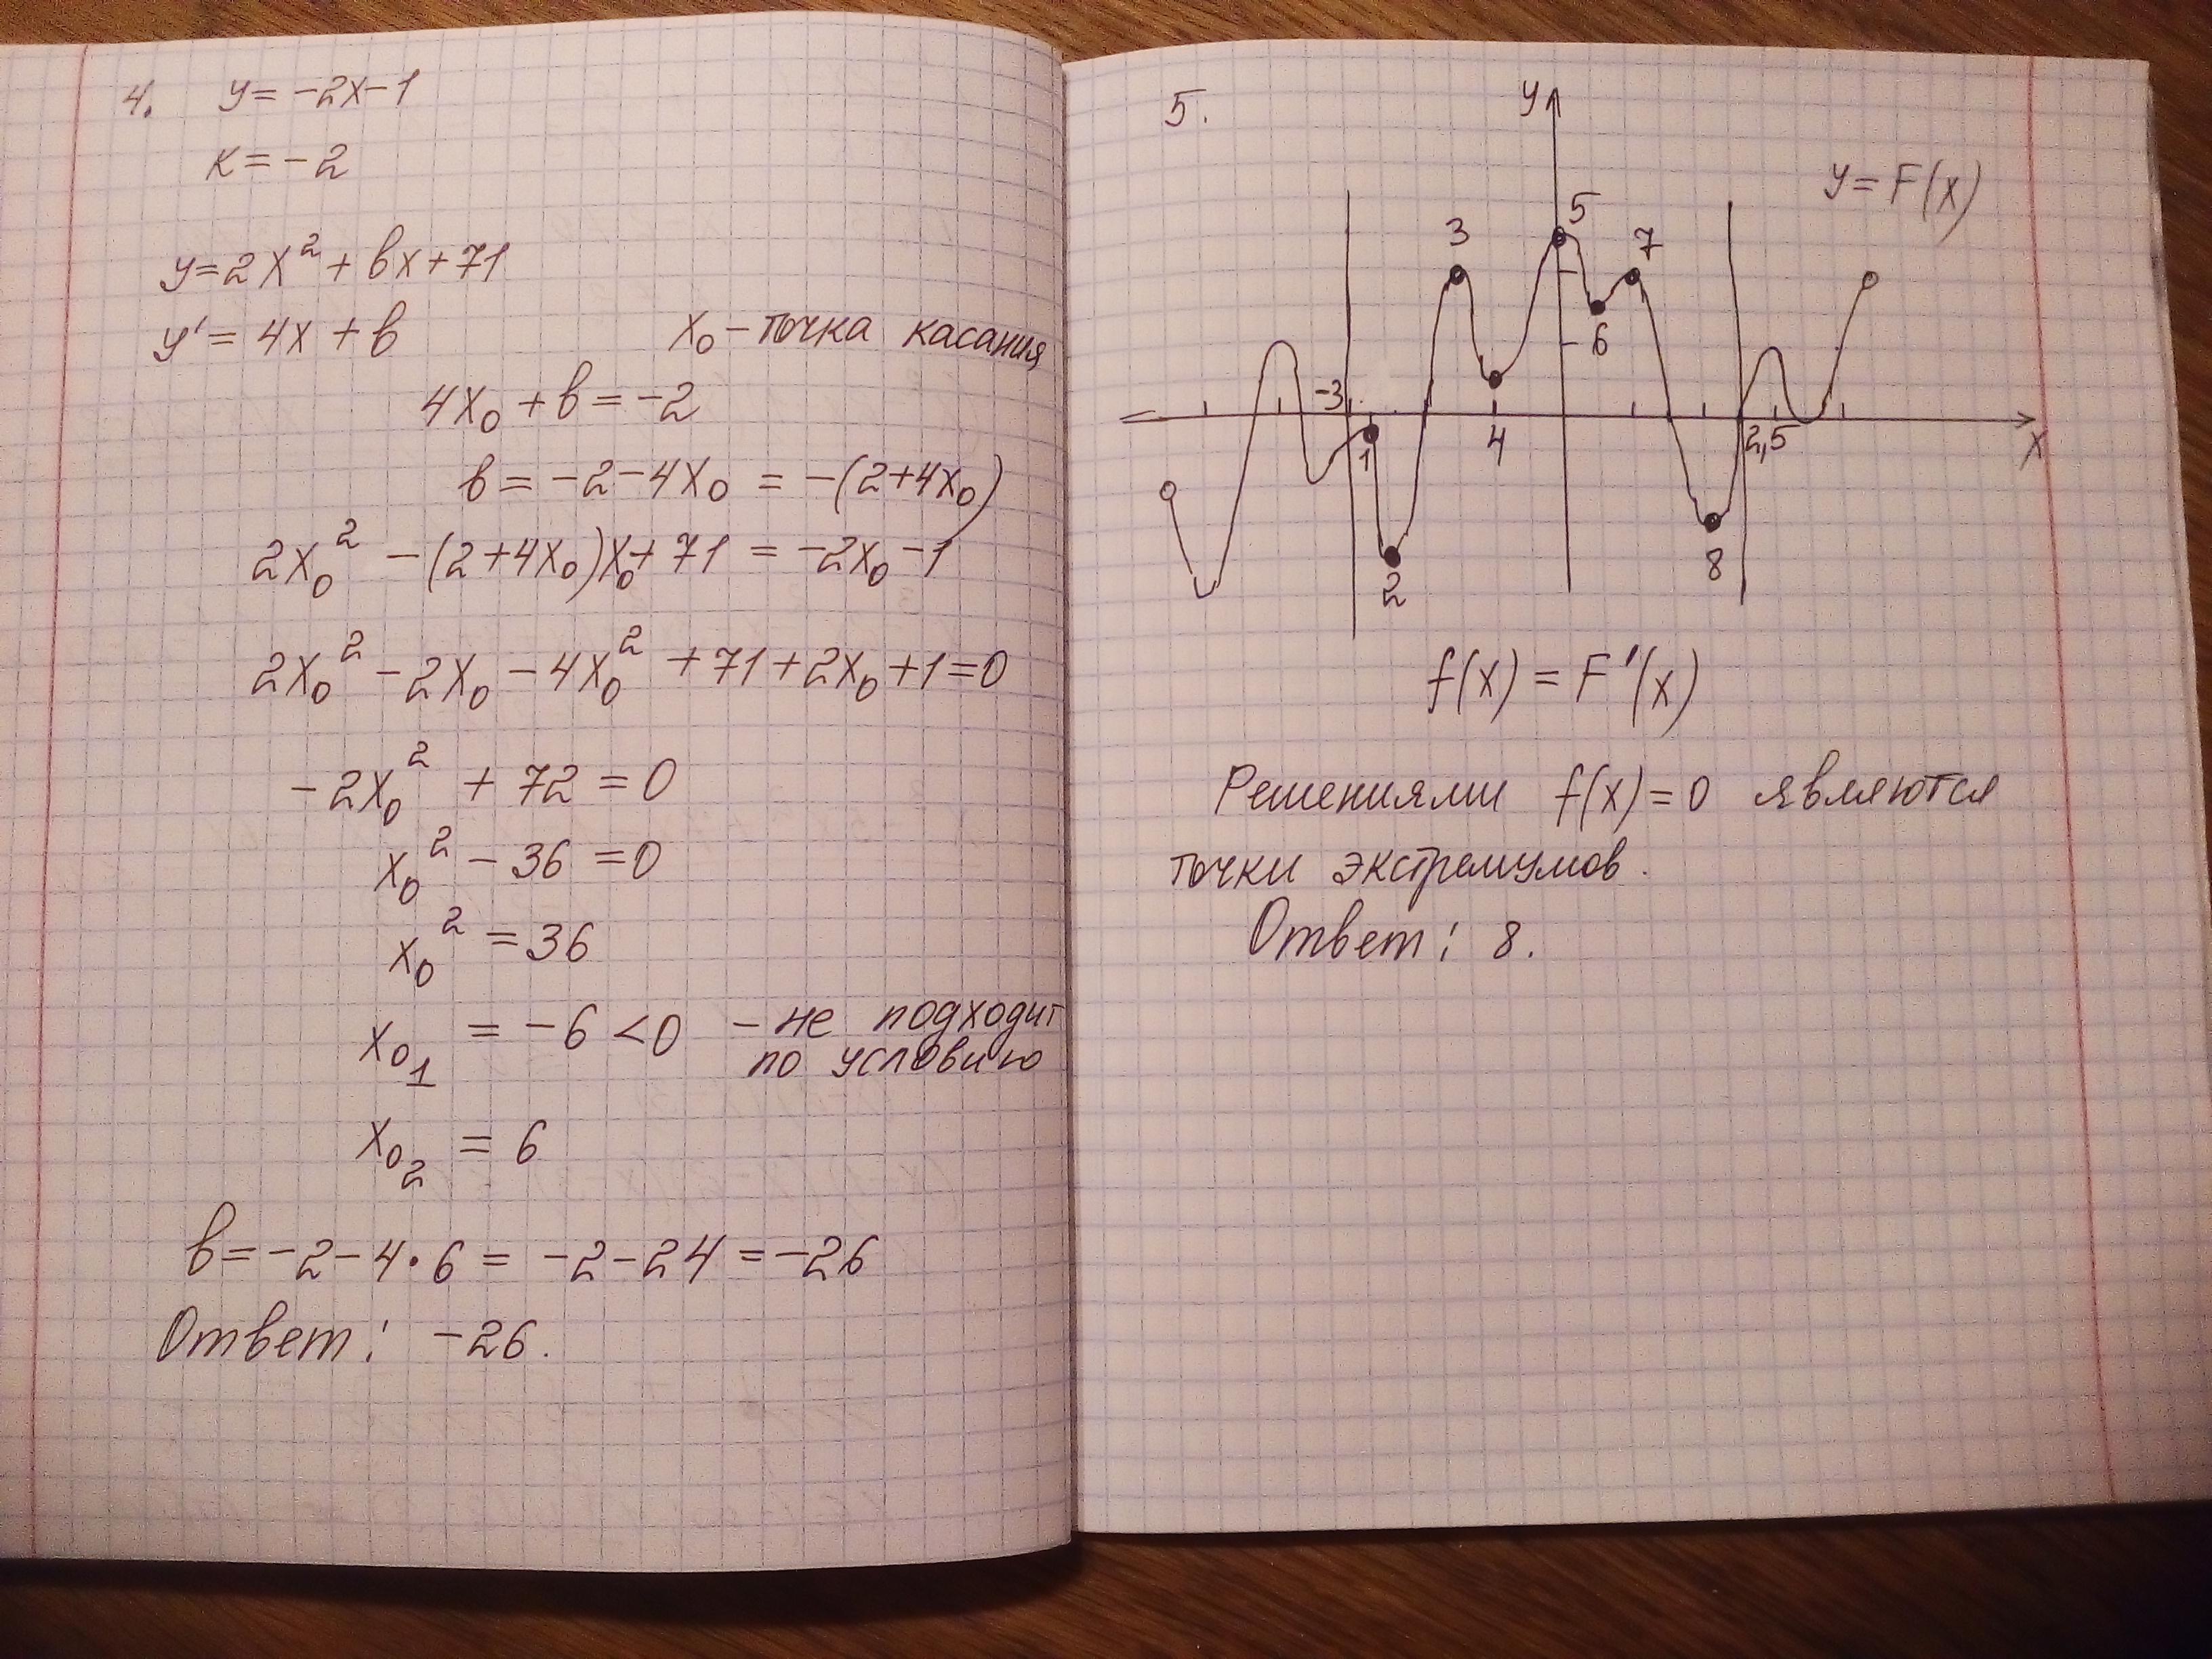 4. y = -2x-1
к = -2
y = 2x² + вx + 71
y' = 4x + в
x₀ - точка касания
4x₀ + в = -2
в = -2 - 4x₀ = -(2+4x₀)
2x₀² - (2+4x₀)x₀ + 71 = -2x₀ - 1
2x₀² - 2x₀ - 4x₀² + 71 + 2x₀ + 1 = 0
-2x₀² + 72 = 0
x₀² - 36 = 0
x₀² = 36
x₀₁ = -6 < 0 - не подходит
по условию
x₀₂ = 6
в = -2 - 4·6 = -2 - 24 = -26
Ответ: -26.
5.
y
y = F(x)
5
3
7
6
-3
1
4
2,5
x
2
8
f(x) = F'(x)
Решениями f(x) = 0 являются
точки экстремумов.
Ответ: 8.